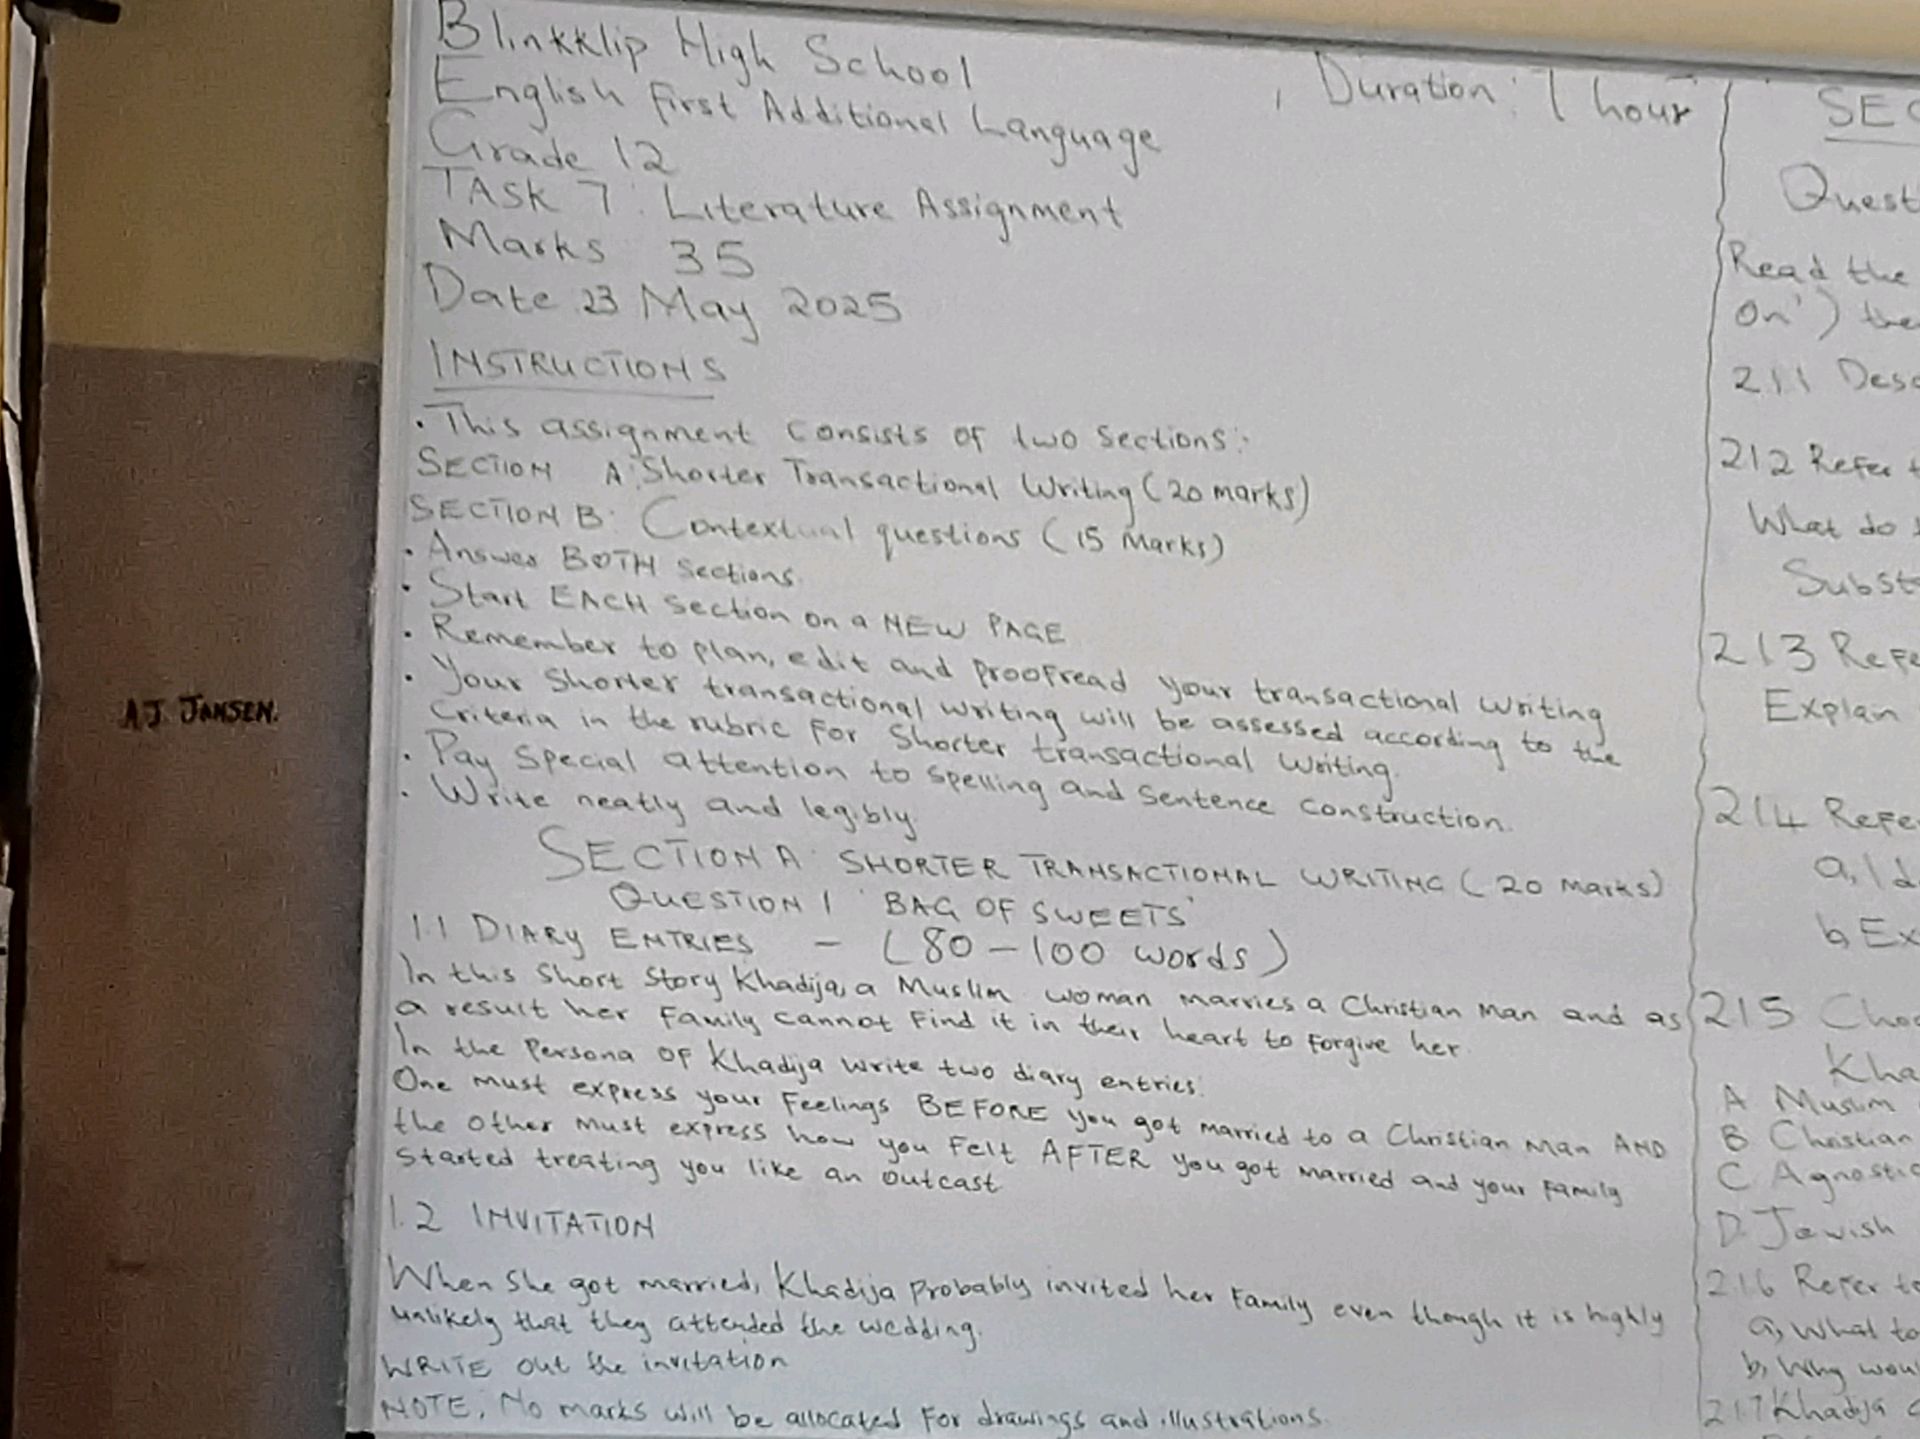 Blinkklip High School
English First Additional Language
Duration: 1 hour
Grade 12
TASK 7: Literature Assignment
Marks 35
Date 23 May 2025
INSTRUCTIONS
• This assignment consists of two sections:
SECTION A: Shorter Transactional Writing (20 marks)
SECTION B: Contextual questions (15 Marks)
• Answer BOTH sections.
• Start EACH section on a NEW PAGE
• Remember to plan, edit and proofread your transactional writing
• Your shorter transactional writing will be assessed according to the
criteria in the rubric for shorter transactional writing.
• Pay special attention to spelling and sentence construction.
• Write neatly and legibly.
SECTION A: SHORTER TRANSACTIONAL WRITING (20 marks)
QUESTION 1 'BAG OF SWEETS'
1.1 DIARY ENTRIES - (80-100 words)
In this short story Khadija, a Muslim woman marries a Christian Man and as
a result her family cannot find it in their heart to forgive her.
In the persona of Khadija write two diary entries.
One must express your feelings BEFORE you got married to a Christian man AND
the other must express how you felt AFTER you got married and your family
started treating you like an outcast
1.2 INVITATION
When she got married, Khadija probably invited her family even though it is highly
unlikely that they attended the wedding.
WRITE out the invitation
NOTE: No marks will be allocated for drawings and illustrations.
SEC
Quest
Read the
on') the
2.1.1 Desc
2.1.2 Refer t
What do
Subst
2.1.3 Refe
Explain
2.1.4 Refe
a, Id
b Ex
2.1.5 Choo
Kha
A Muslim
B Christian
C Agnostic
D Jewish
2.1.6 Refer to
a, What to
b, Why woul
2.1.7 Khadija
AJ. JANSEN.